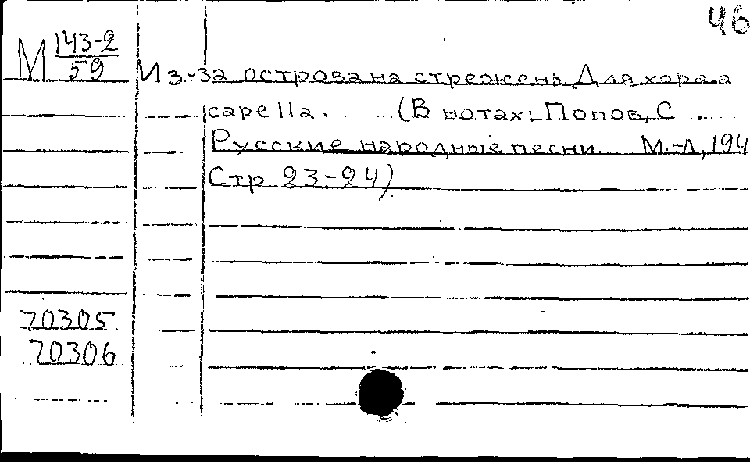 46
М 143-2
59
Из-за острова на стрежень. Для хора a
capella. (В нотах: Попов, С
Русские народные песни. М.-Л, 194
Стр 23-24)
70305
70306